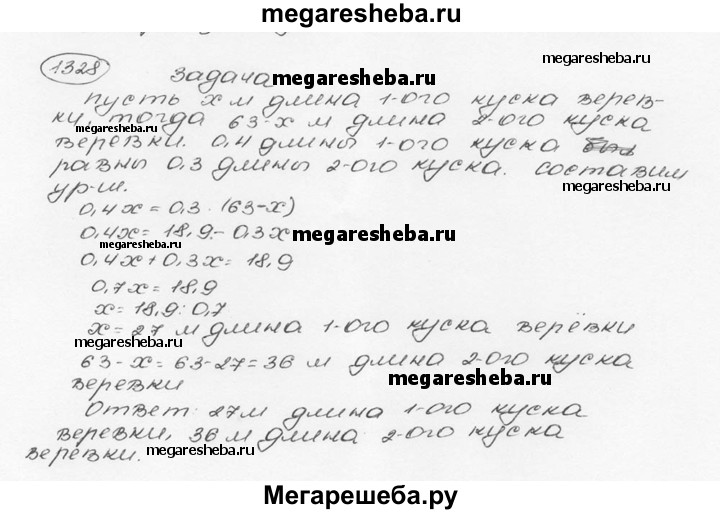 megaresheba.ru
1328
задача megaresheba.ru
megaresheba.ru
пусть х м длина 1-ого куска верев-
ку, тогда 63-х м длина 2-ого куска
megaresheba.ru
веревки. 0,4 длины 1-ого куска
равны 0,3 длины 2-ого куска. составим
megaresheba.ru
ур-ш.
0,4х = 0,3 · (63-х)
0,4х = 18,9 - 0,3х megaresheba.ru
megaresheba.ru
0,4х + 0,3х = 18,9
0,7х = 18,9
х = 18,9 : 0,7
х = 27 м длина 1-ого куска верёвки
megaresheba.ru
63 - х = 63-27 = 36 м длина 2-ого куска
веревки megaresheba.ru
Ответ: 27м длина 1-ого куска
веревки, 36 м длина 2-ого куска
верёвки. megaresheba.ru
Мегарешеба.ру